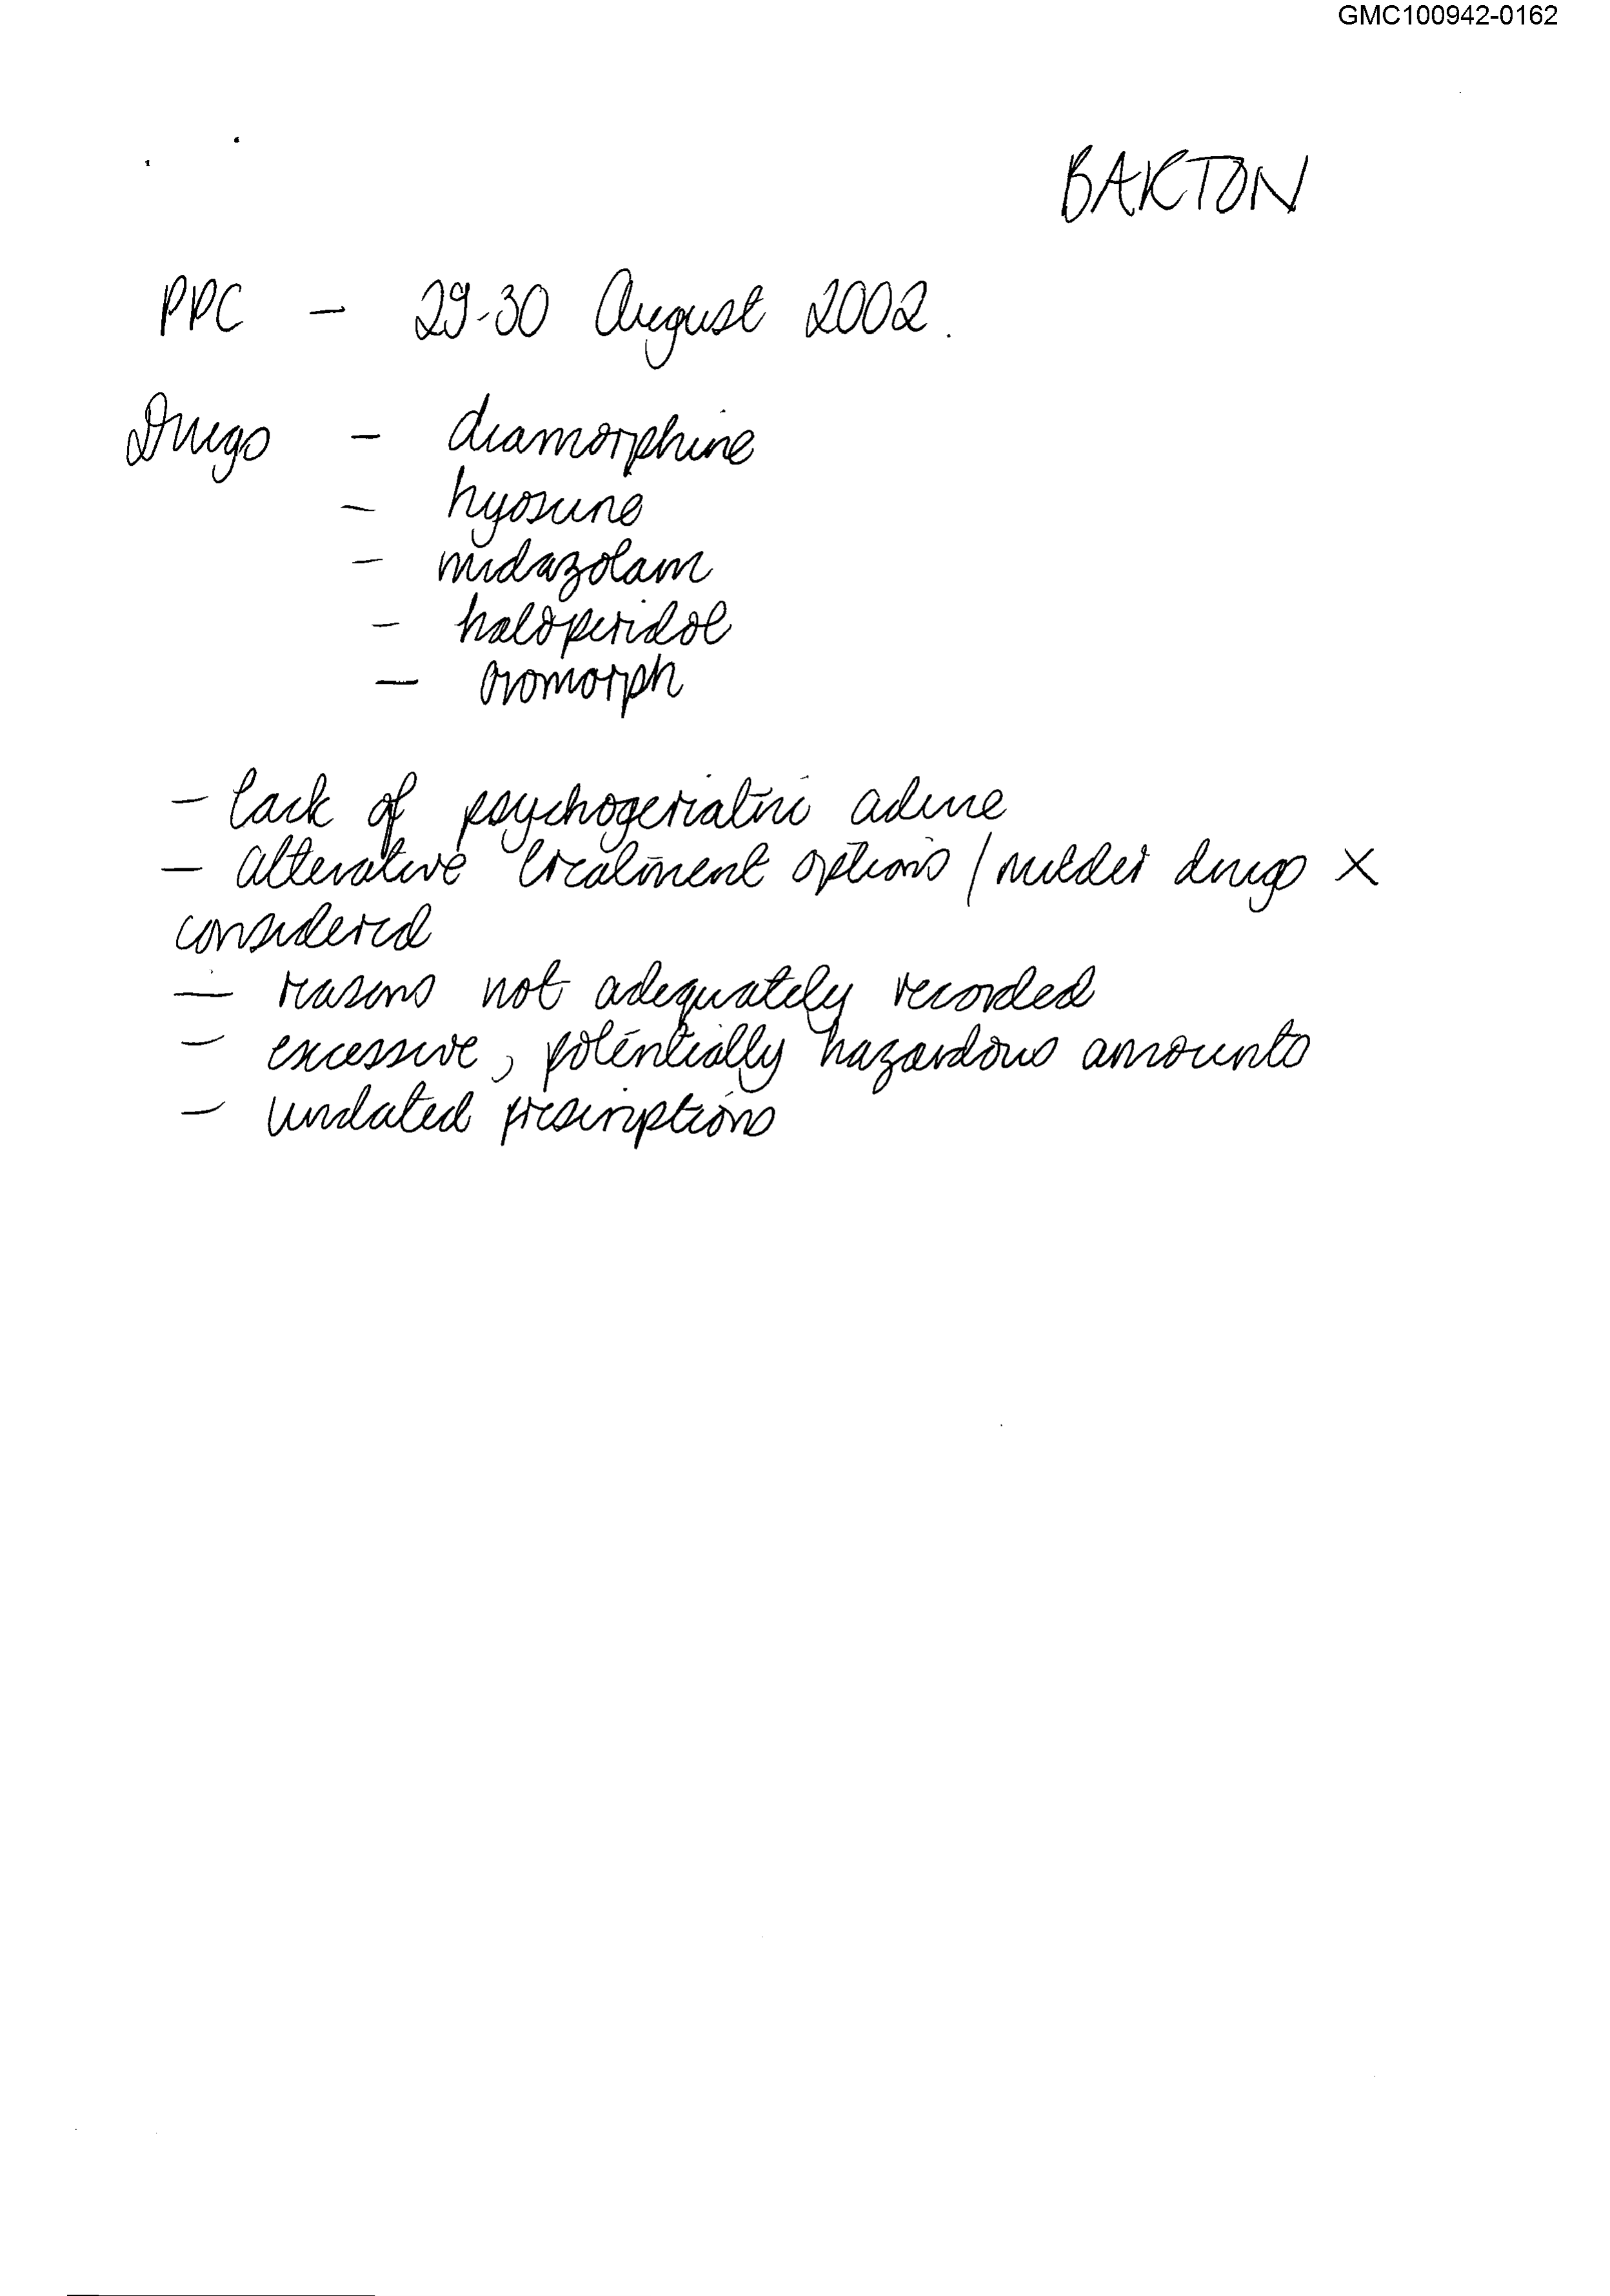 GMC100942-0162
BARTON
PPC - 29-30 August 2002.
Drugs - diamorphine
- hyoscine
- midazolam
- haloperidol
- oromorph
- lack of psychogeriatric advice
- alterative treatment options / milder drugs X
considered
- reasons not adequately recorded
- excessive, potentially hazardous amounts
- undated prescriptions